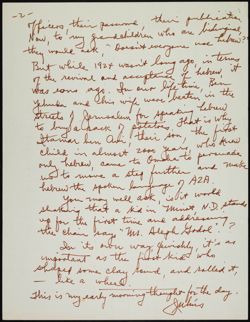 -2-
officers, their password, their publication
Now, to my grandchildren who are bilingual,
they would ask "Doesn't everyone use hebrew?"
But while 1924 wasn't long ago, in terms
of the revival and acceptance of hebrew it
was eons ago. In our life time, Ben
Yehuda and his wife were beaten in the
streets of Jerusalem for speaking hebrew
to buy a sack of potatoes. That is why
Itamar ben Avi, their son, the first
child in almost 2000 years, who knew
only hebrew came to Omaha to persuade
us to move a step further and make
hebrew the spoken language of AZA.
You may well ask, is it world
shaking that a kid in Minot N.D. stands
up for the first time and addressing
the chair say "Mr. Aleph Godol"!
In its own way possibly, it's as
important as the first kid who
shaped some clay round, and rolled it,
— like a wheel.
This is my early morning thought for the day.
Julius